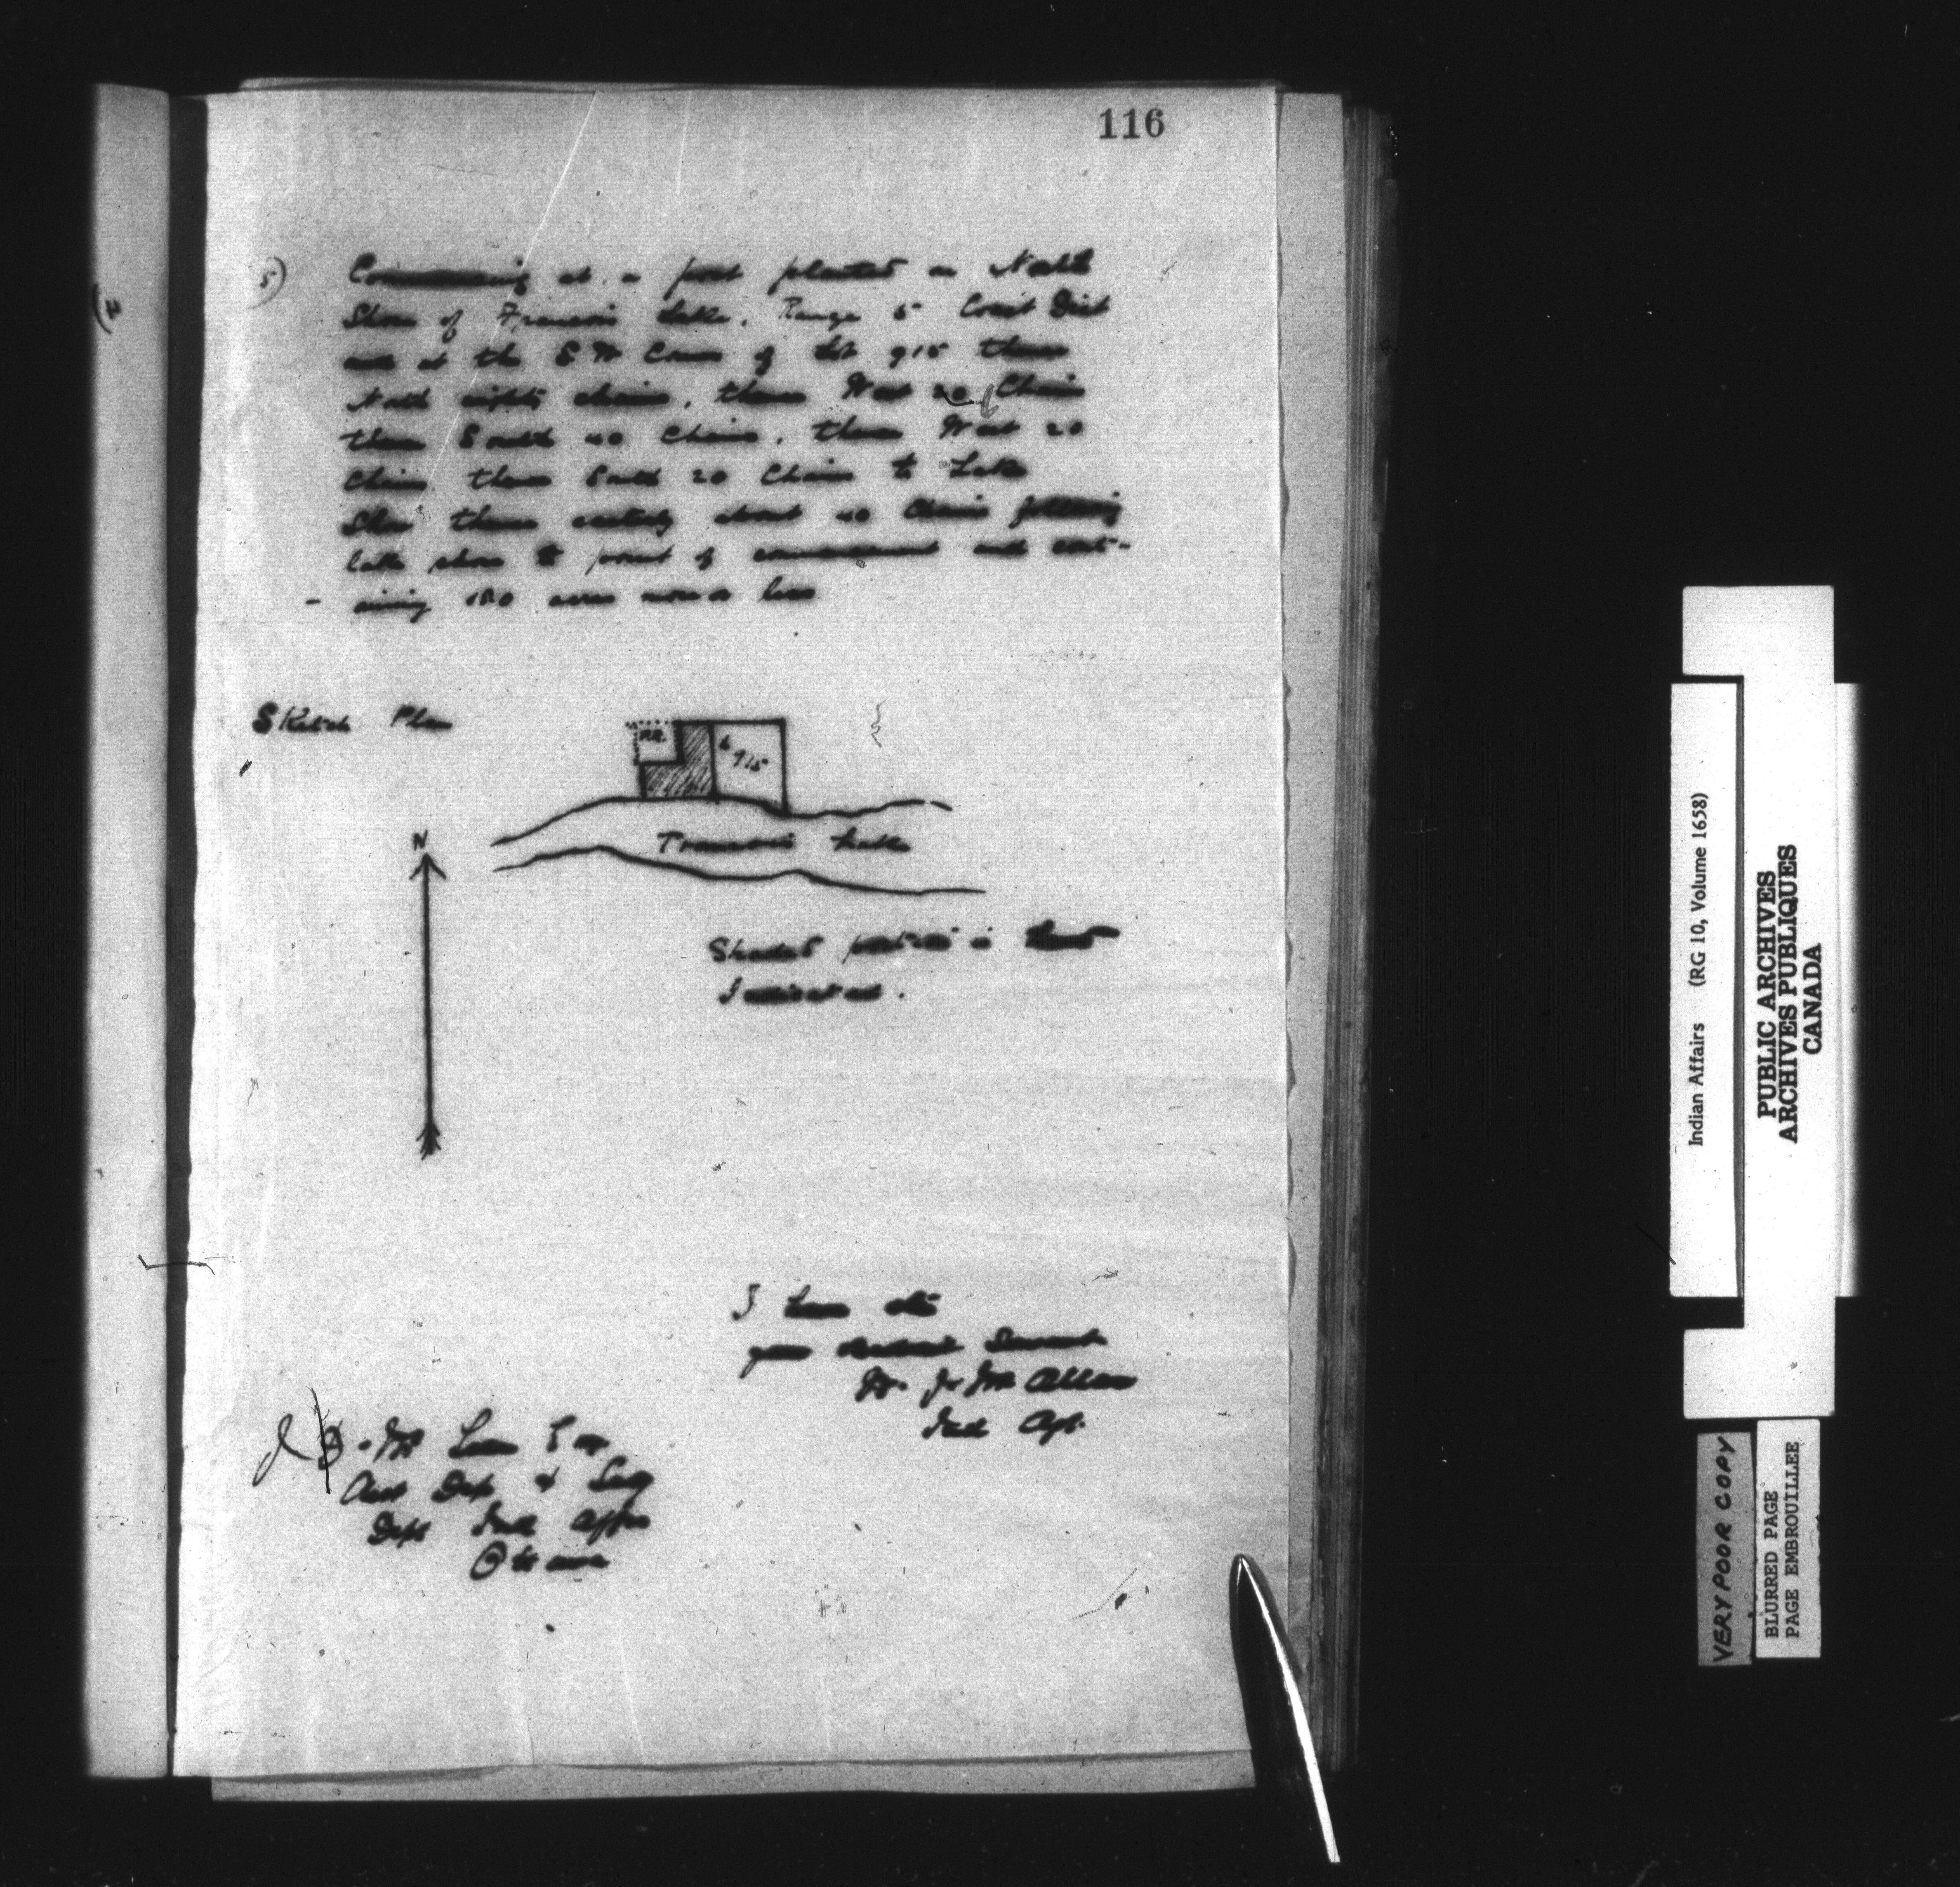 116
5) Commencing at a post planted on North
Shore of Francois Lake. Range 5 Coast Dist
and at the S W Corner of Lot 915 thence
North eighty chains, thence West 20 Chains
thence South 40 Chains, thence West 20
Chains thence South 20 Chains to Lake
Shore thence easterly about 40 Chains following
lake shore to point of commencement and cont-
-aining 180 acres more or less
Sketch Plan
L 915
N
Francois Lake
Shaded portion is
Indicated.
I have etc
your obedient Servant
Ind Agt.
J D. McLean Esq
Asst Dep & Secy
Dept Ind Affrs
Ottawa
Indian Affairs (RG 10, Volume 1658)
PUBLIC ARCHIVES
ARCHIVES PUBLIQUES
CANADA
VERY POOR COPY
BLURRED PAGE
PAGE EMBROUILLEE